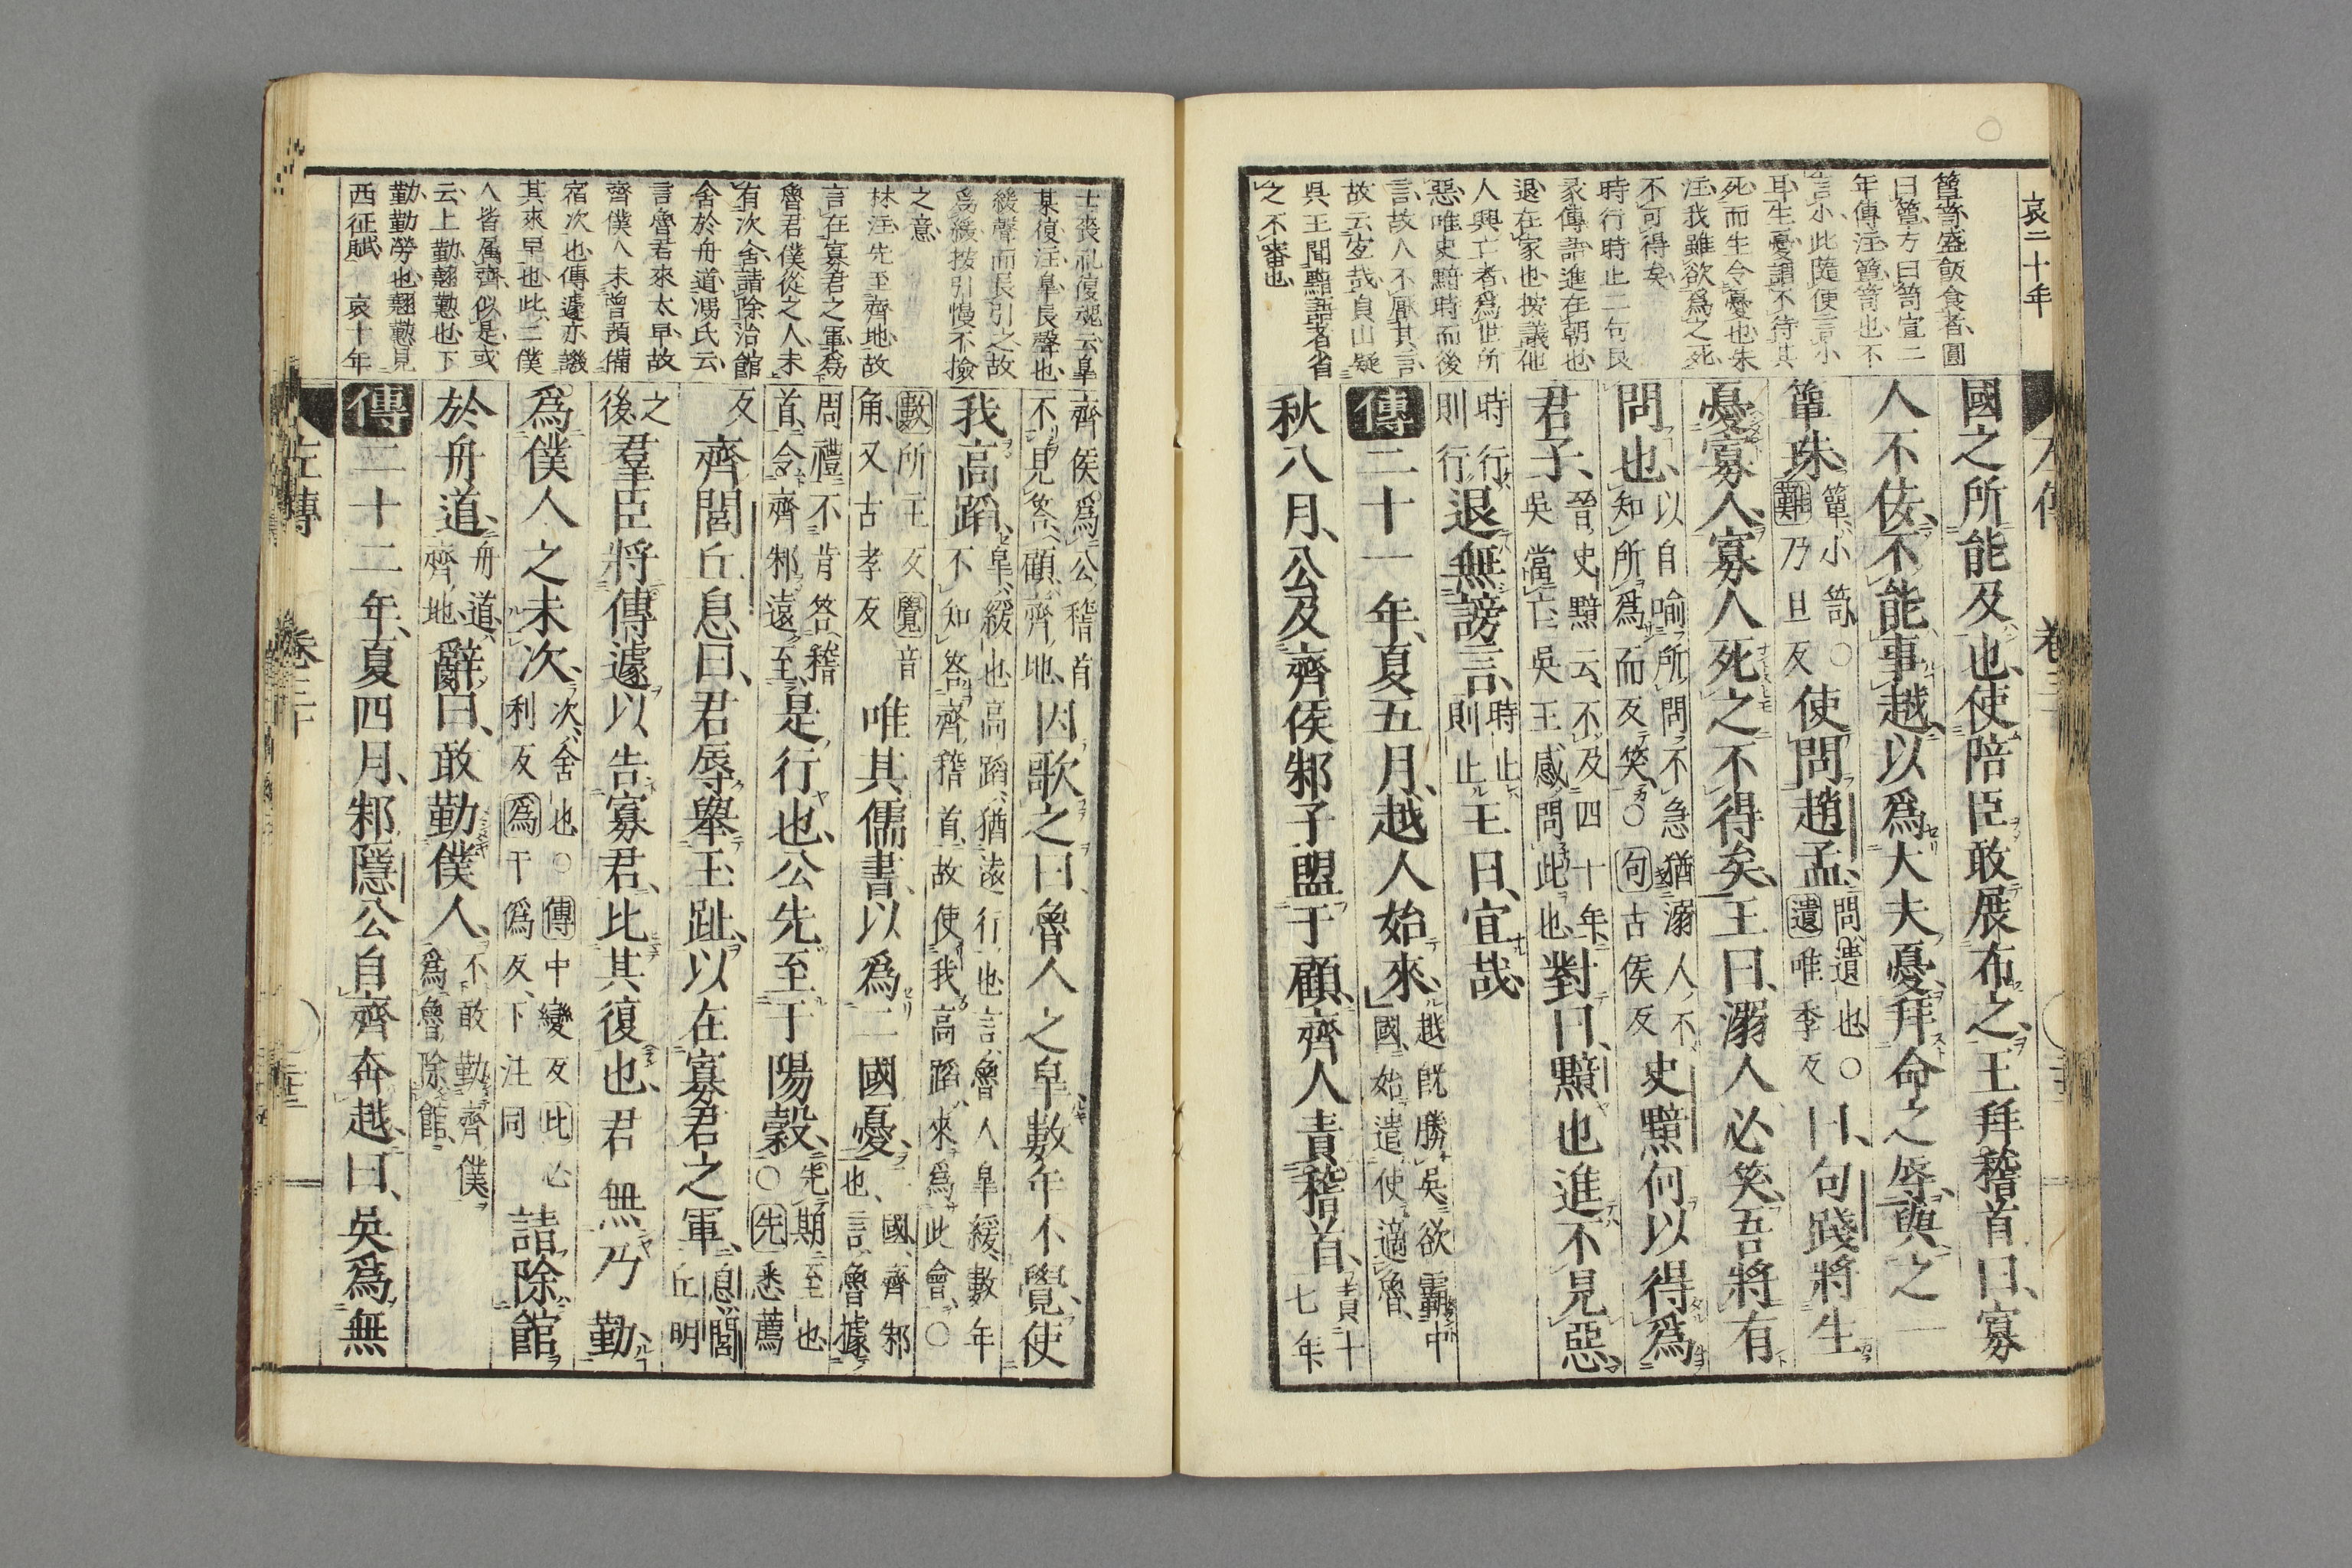 哀二十年
簞笥盛飯食者、圓
曰簞、方曰笥宣二
年傳注、簞笥也、不
言小、此隨便言小
耳、生憂謂不待其
死而生令憂也、朱
注、我雖欲爲之死、
不可得矣、
時行時止二句良
家傳註進在朝也、
退在家也、按議他
人興亡者、爲世所
惡、唯史黯時而後
言、故人不厭其言、
故云宜哉、貞山疑
吳王聞黯語者省
之不審也、
國之所能及也、使陪臣敢展布之、王拜稽首曰、寡
人不佞、不能事越、以爲大夫憂、拜命之辱、與之一
簞珠、簞、小笥、○簞乃旦反使問趙孟、問、遺也、○遺唯季反曰、句踐將生
憂寡人、寡人死之不得矣、王曰、溺人必笑、吾將有
問也、以自喻所問不急、猶溺人不知所爲而反笑、○句古侯反史黯何以得爲
君子、晉史黯云、不及四十年、吳當亡、吳王感問此也、對曰、黯也進不見惡、
時行則行退無謗言、時止則止王曰、宜哉、
傳二十一年、夏五月、越人始來、越既勝吳、欲霸中國、始遣使適魯、
秋八月、公及齊侯邾子盟于顧、齊人責稽首、責十七年
齊侯爲公稽首不見荅、顧、齊地、因歌之曰、魯人之皐、數年不覺、使
我高蹈、皐、緩也、高蹈、猶遠行也、言魯人皐緩、數年不知荅齊稽首、故使我高蹈、來爲此會、○
數所主反覺音角又古孝反唯其儒書、以爲二國憂、二國、齊邾也、言魯據
周禮不肯荅稽首、令齊邾遠至、是行也、公先至于陽穀、先期至也、○先悉薦
反齊閭丘息曰、君辱舉玉趾、以在寡君之軍、息、閭丘明
之後羣臣將傳遽以告寡君、比其復也、君無乃勤、
爲僕人之未次、次、舍也、○傳中戀反比必利反爲于僞反、下注同請除館
於舟道、舟道、齊地、辭曰、敢勤僕人、不敢勤齊僕爲魯除館、
傳二十二年、夏四月、邾隱公自齊奔越、曰、吳爲無
士喪礼復魂云皐
某復注皐長聲也、
緩聲而長引之故
爲緩按引慢不撿
之意、
林注、先至齊地、故
言在寡君之軍、爲
魯君僕從之人、未
有次舍、請除治館
舍於舟道、馮氏云、
言魯君來太早、故
齊僕人未曾預備
宿次也、傳遽亦譏
其來早也、此二僕
人皆属齊、似是、或
云上勤、勤、慇懃也、下
勤勤勞也、慇懃見
西征賦、 哀十年
左傳 卷三十